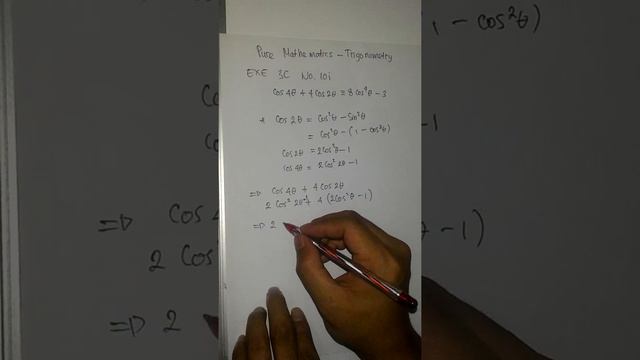 Pure Mathematics - Trigonometry
EXE 3C No. 10i
cos 4θ + 4 cos 2θ = 8 cos⁴θ - 3
* cos 2θ = cos²θ - sin²θ
= cos²θ - (1 - cos²θ)
cos 2θ = 2cos²θ - 1
cos 4θ = 2cos² 2θ - 1
=> cos 4θ + 4 cos 2θ
2 cos² 2θ - 1 + 4 (2cos²θ - 1)
=> 2